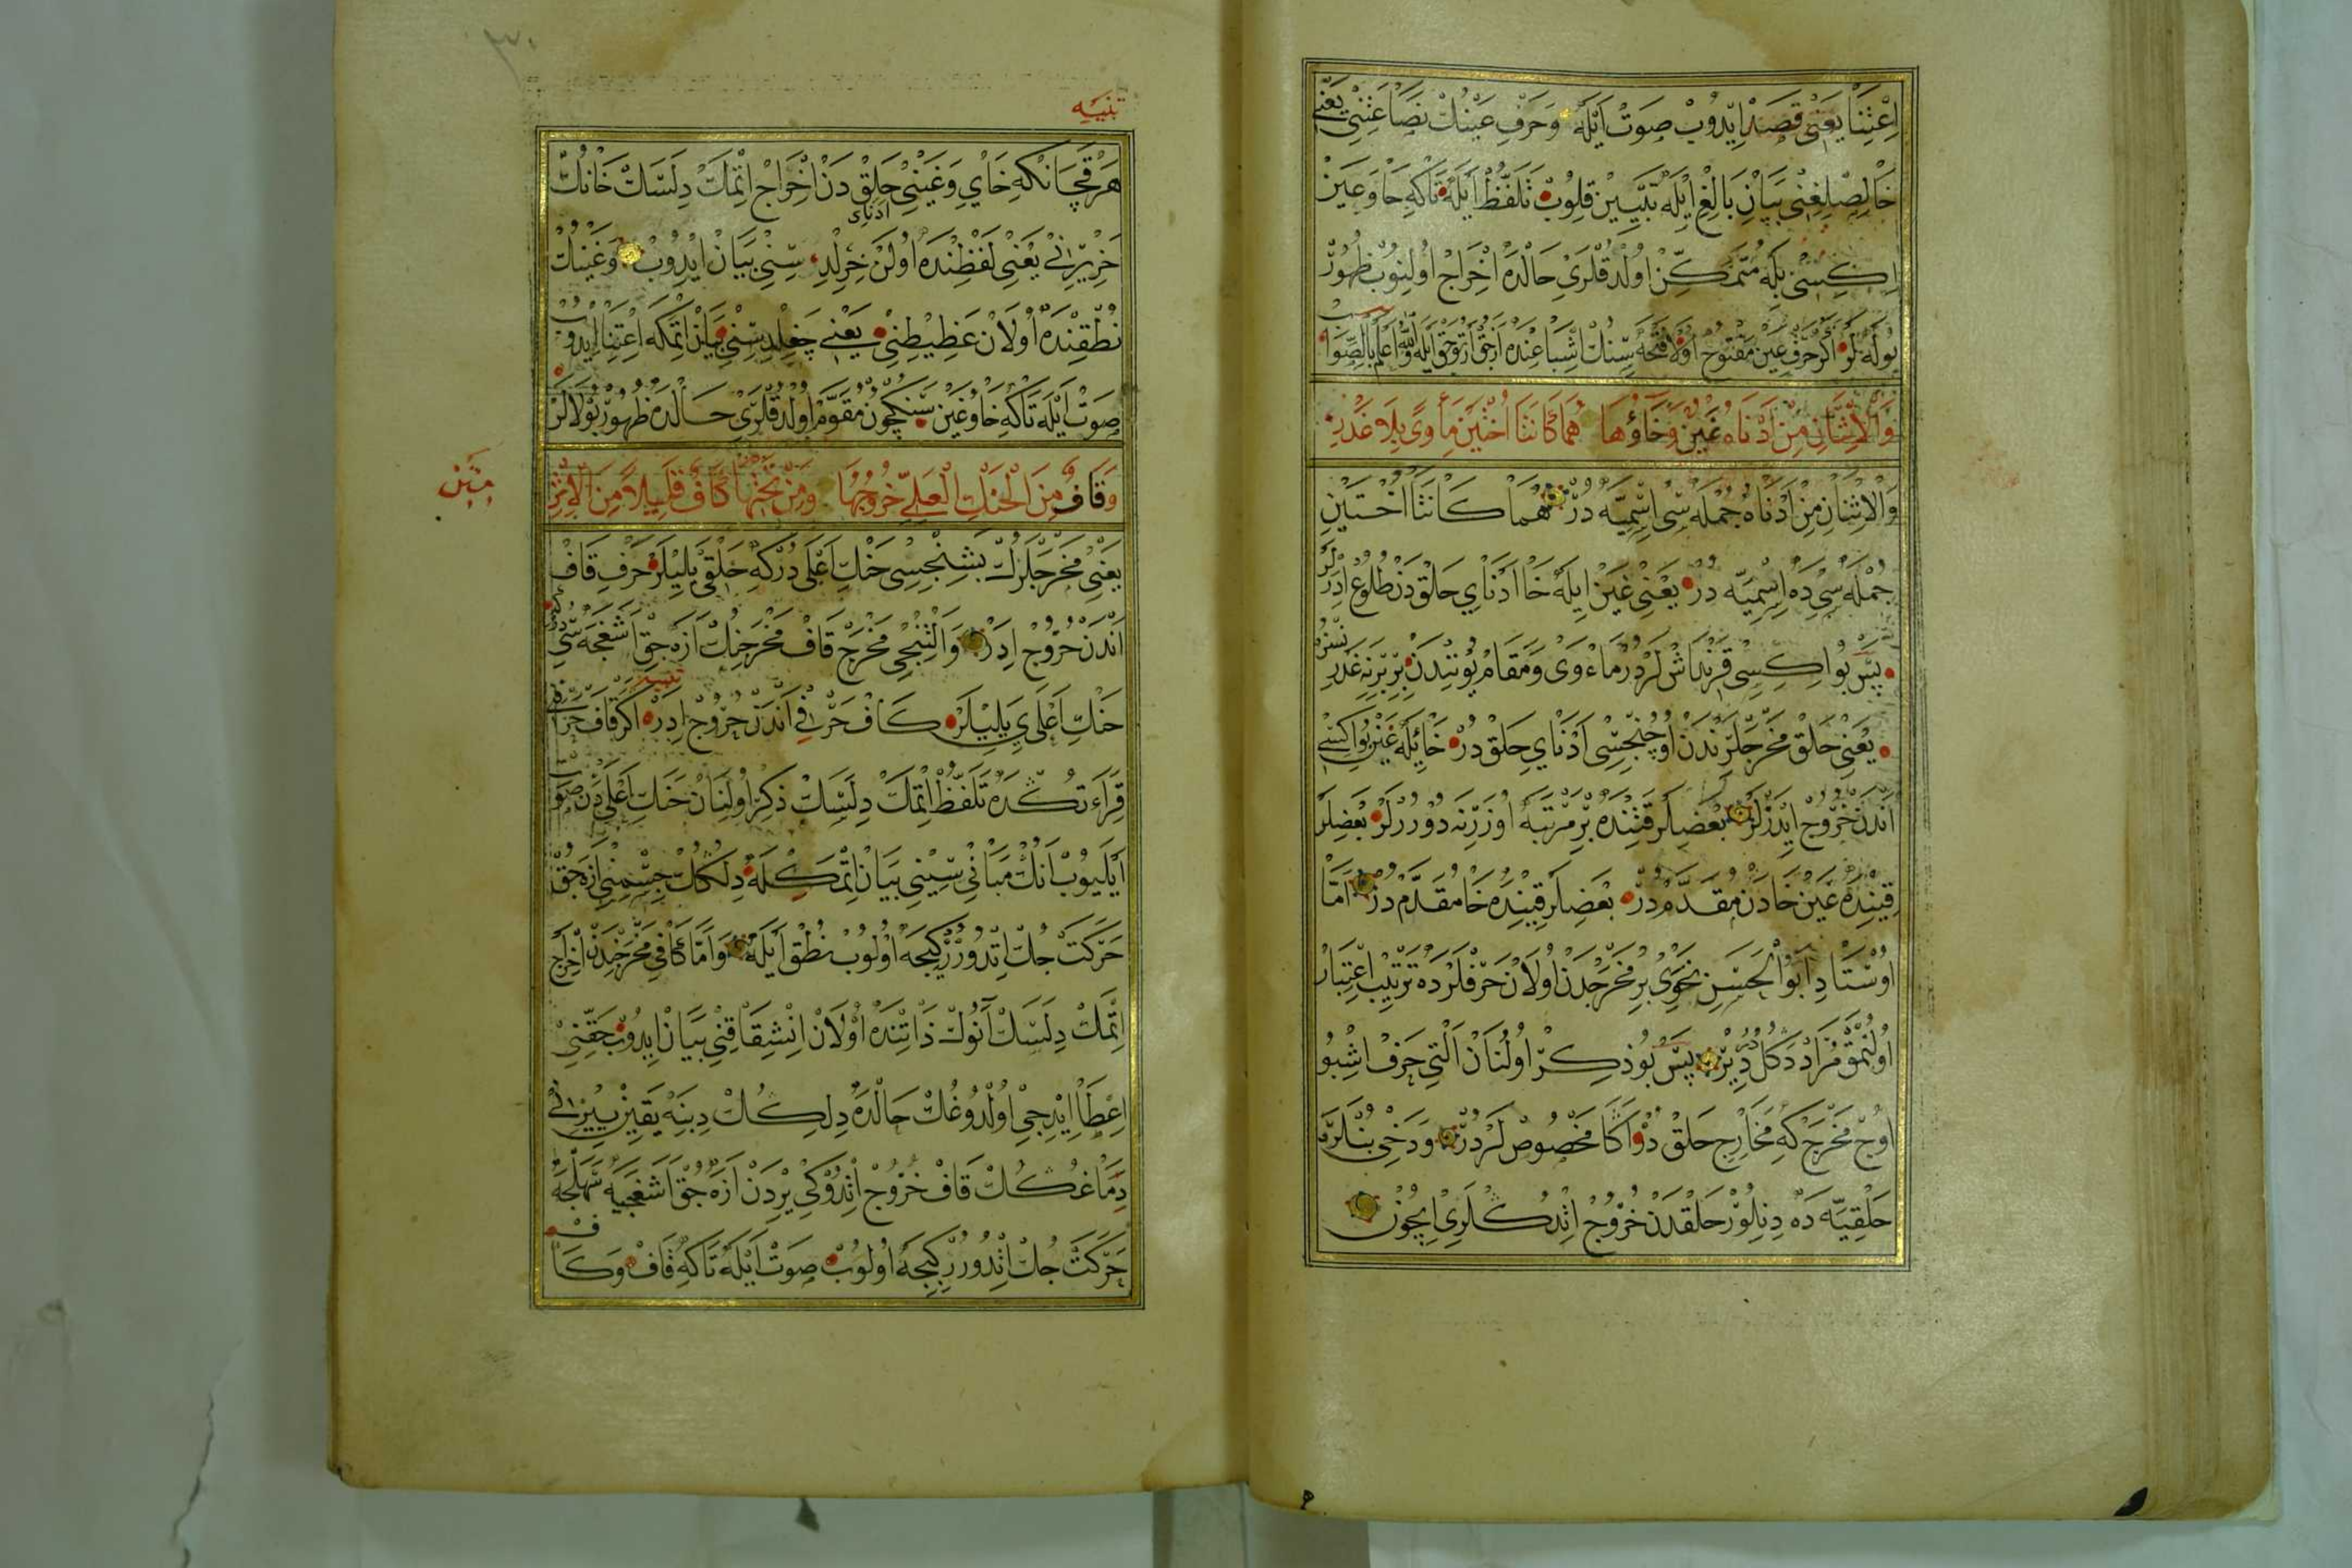 اِعْتِنَا يَعْنِى قَصَدْ اِيدُوبْ صَوتْ اَيْلَه وَحَرْفِ عَيْنُكْ نَصَاعَتِنِى يَعْنِى
خَالِصْلِغِنِى بَيَانِ بَالِغْ اِيْلَه تَبْيِينْ قِلُوبْ تَلَفُّظْ اَيْلَه تَاكِه حَا وَعَيْنْ
اِكِيسِى بِلَه مُتَمَكِّنْ اُولْدُقْلَرِى حَالْدَه اِخْرَاجْ اُولِنُوبْ ظُهُورْ
بُولَه لَرْ اَكَرْ حَرْفِ عَيْنْ مَفْتُوحْ اُولَا فَتْحَه سِنُكْ اِشْبَاعِنْدَه اَزَجِقْ اَرْتُوجَقْ اَيْلَه وَاللّٰهُ اَعْلَمُ بِالصَّوَابْ
وَالْاِثْنَانِ مِنْ اَدْنَاهُ غَيْنٌ وَخَاؤُهَا هُمَا كَانَتَا اُخْتَيْنِ مَأْوًى بِلَا غَدْرِ
وَالْاِثْنَانِ مِنْ اَدْنَاهُ جُمْلَه سِى اِسْمِيَّه دُرْ هُمَا كَانَتَا اُخْتَيْنِ
جُمْلَه سِى دَه اِسْمِيَّه دُرْ يَعْنِى غَيْنْ اِيلَه خَا اَدْنَاىِ حَلْقْدَنْ طُلُوعْ اِدَرْلَرْ
پَسْ بُو اِكِيسِى قَرِنْدَاشْ لَرْدُرْ مَاْوَى وَمَقَامْ يُونِنْدَنْ بِرْبِرِنَه غَدِرْسِزْ
يَعْنِى حَلْقْ مَخْرَجْلَرِنْدَنْ اُوچُنْجِيسِى اَدْنَاىِ حَلْقْ دُرْ خَا اِيلَه غَيْنْ بُو اِكِيسِى
اَنْدَنْ خُرُوجْ اِيدَرْلَرْ بَعْضِلَرْ قَتِنْدَه بِرْ مَرْتَبَه اُوزَرِنَه دُورُرْلَرْ بَعْضِلَرْ
قَتِنْدَه غَيْنْ خَادَنْ مُقَدَّمْ دُرْ بَعْضِلَرْ قَتِنْدَه خَا مُقَدَّمْ دُرْ اَمَّا
اُوسْتَادِ اَبُو الْحَسَنِ نَحْوِى بِرْ مَخْرَجْدَنْ اُولَانْ حَرْفْلَرْدَه تَرْتِيبْ اِعْتِبَارْ
اُولُنْمَقْ مُرَادْ دَكُلْ دُرْ دِيرْ پَسْ بُو ذِكِرْ اُولُنَانْ اَلْتِى حَرْفْ اِشْبُو
اُوچْ مَخْرَجْ كِه مَخَارِجِ حَلْقْ دُرْ اَكَا مَخْصُوصْ لَرْدُرْ وَدَخِى بُنْلَرَه
حَلْقِيَّه دَه دِنِلُورْ حَلْقْدَنْ خُرُوجْ اِتْدُكْلَرِى اِيچُونْ
تنبيه
هَرْ قَچَانْكِه خَاىِ وَغَيْنِى حَلِقْ دَنْ اِخْرَاجْ اِتْمَكْ دِلَسَكْ خَانُكْ
ادناى
خَرِيرِنِى يَعْنِى لَفْظِنْدَه اُولَنْ خِرِلْدِ سِنِى بَيَانْ اِيدُوبْ وَغَيْنُكْ
نُطْقِنْدَه اُولَانْ غَطِيطِنِى يَعْنِى چَغِلْدِسِنِى بَيَانْ اِتْمَكَه اِعْتِنَا اِيدُوبْ
صَوتْ اَيْلَه تَاكِه خَا وُ غَيْنْ سَنِكْچُونْ مُقَوَّمْ اُولْدُقْلَرِى حَالْدَه ظُهُورْ بُولَالَرْ
متن
وَقَافٌ مِنَ الْحَنَكِ الْعَلِىِّ خُرُوجُهَا وَمِنْ تَحْتِهَا كَافٌ قَلِيلًا مِنَ الْاِثْرِ
يَعْنِى مَخْرَجْلَرُكْ بَشِنْجِيسِى حَنَكِ اَعْلَى دُرْكِه حَلْقَى يَلِيلَرْ حَرْفِ قَافْ
اَنْدَنْ خُرُوجْ اِدَرْ وَالْتِنْجِى مَخْرَجْ قَافْ مَخْرَجِنُكْ اَزَه جِقْ اَشَغَجَه سِى دُرْكِه
تنبيه
حَنَكِ اَعْلَى يَلِيلَرْ كَافْ حَرْفِى اَنْدَنْ خُرُوجْ اِدَرْ اَكَرْ قَافْ حَرْفِنِى
قِرَاءَتُكْدَه تَلَفُّظْ اِتْمَكْ دِلَسَكْ ذِكِرْ اُولِنَانْ حَنَكِ اَعْلَى دَنْ صَوتْ
اَيْلَيُوبْ اَنُكْ مَبَانِى سِنِى بَيَانْ اِتْمَكْلَه دِلُكُكْ جِسْمِنِى اَزَه جُقْ
حَرَكَتْ جُكْ اِتْدُورُرْكِجَه اُولُوبْ نُطْقْ اَيْلَه وَاَمَّا كَافِى مَخْرَجِنْدَنْ اِخْرَاجْ
اِتْمَكْ دِلَسَكْ اَنُوكْ ذَاتِنْدَه اُولَانْ اِنْشِقَاقِنِى بَيَانْ اِيدُوبْ حَقِّنِى
اِعْطَا اِيْدِجِى اُولْدُوغُكْ حَالْدَه دِلِكُكْ دِبِنَه يَقِينْ يِيرِنِى
دِمَاغُكُكْ قَافْ خُرُوجْ اِتْدُوكِى يِرْدَنْ اَزَه جُقْ اَشَغَجَيَه سَهْلْجَه
حَرَكَتْ جُكْ اِتْدُورُرْكِجَه اُولُوبْ صَوتْ اَيْلَه تَاكِه قَافْ وَكَافْ